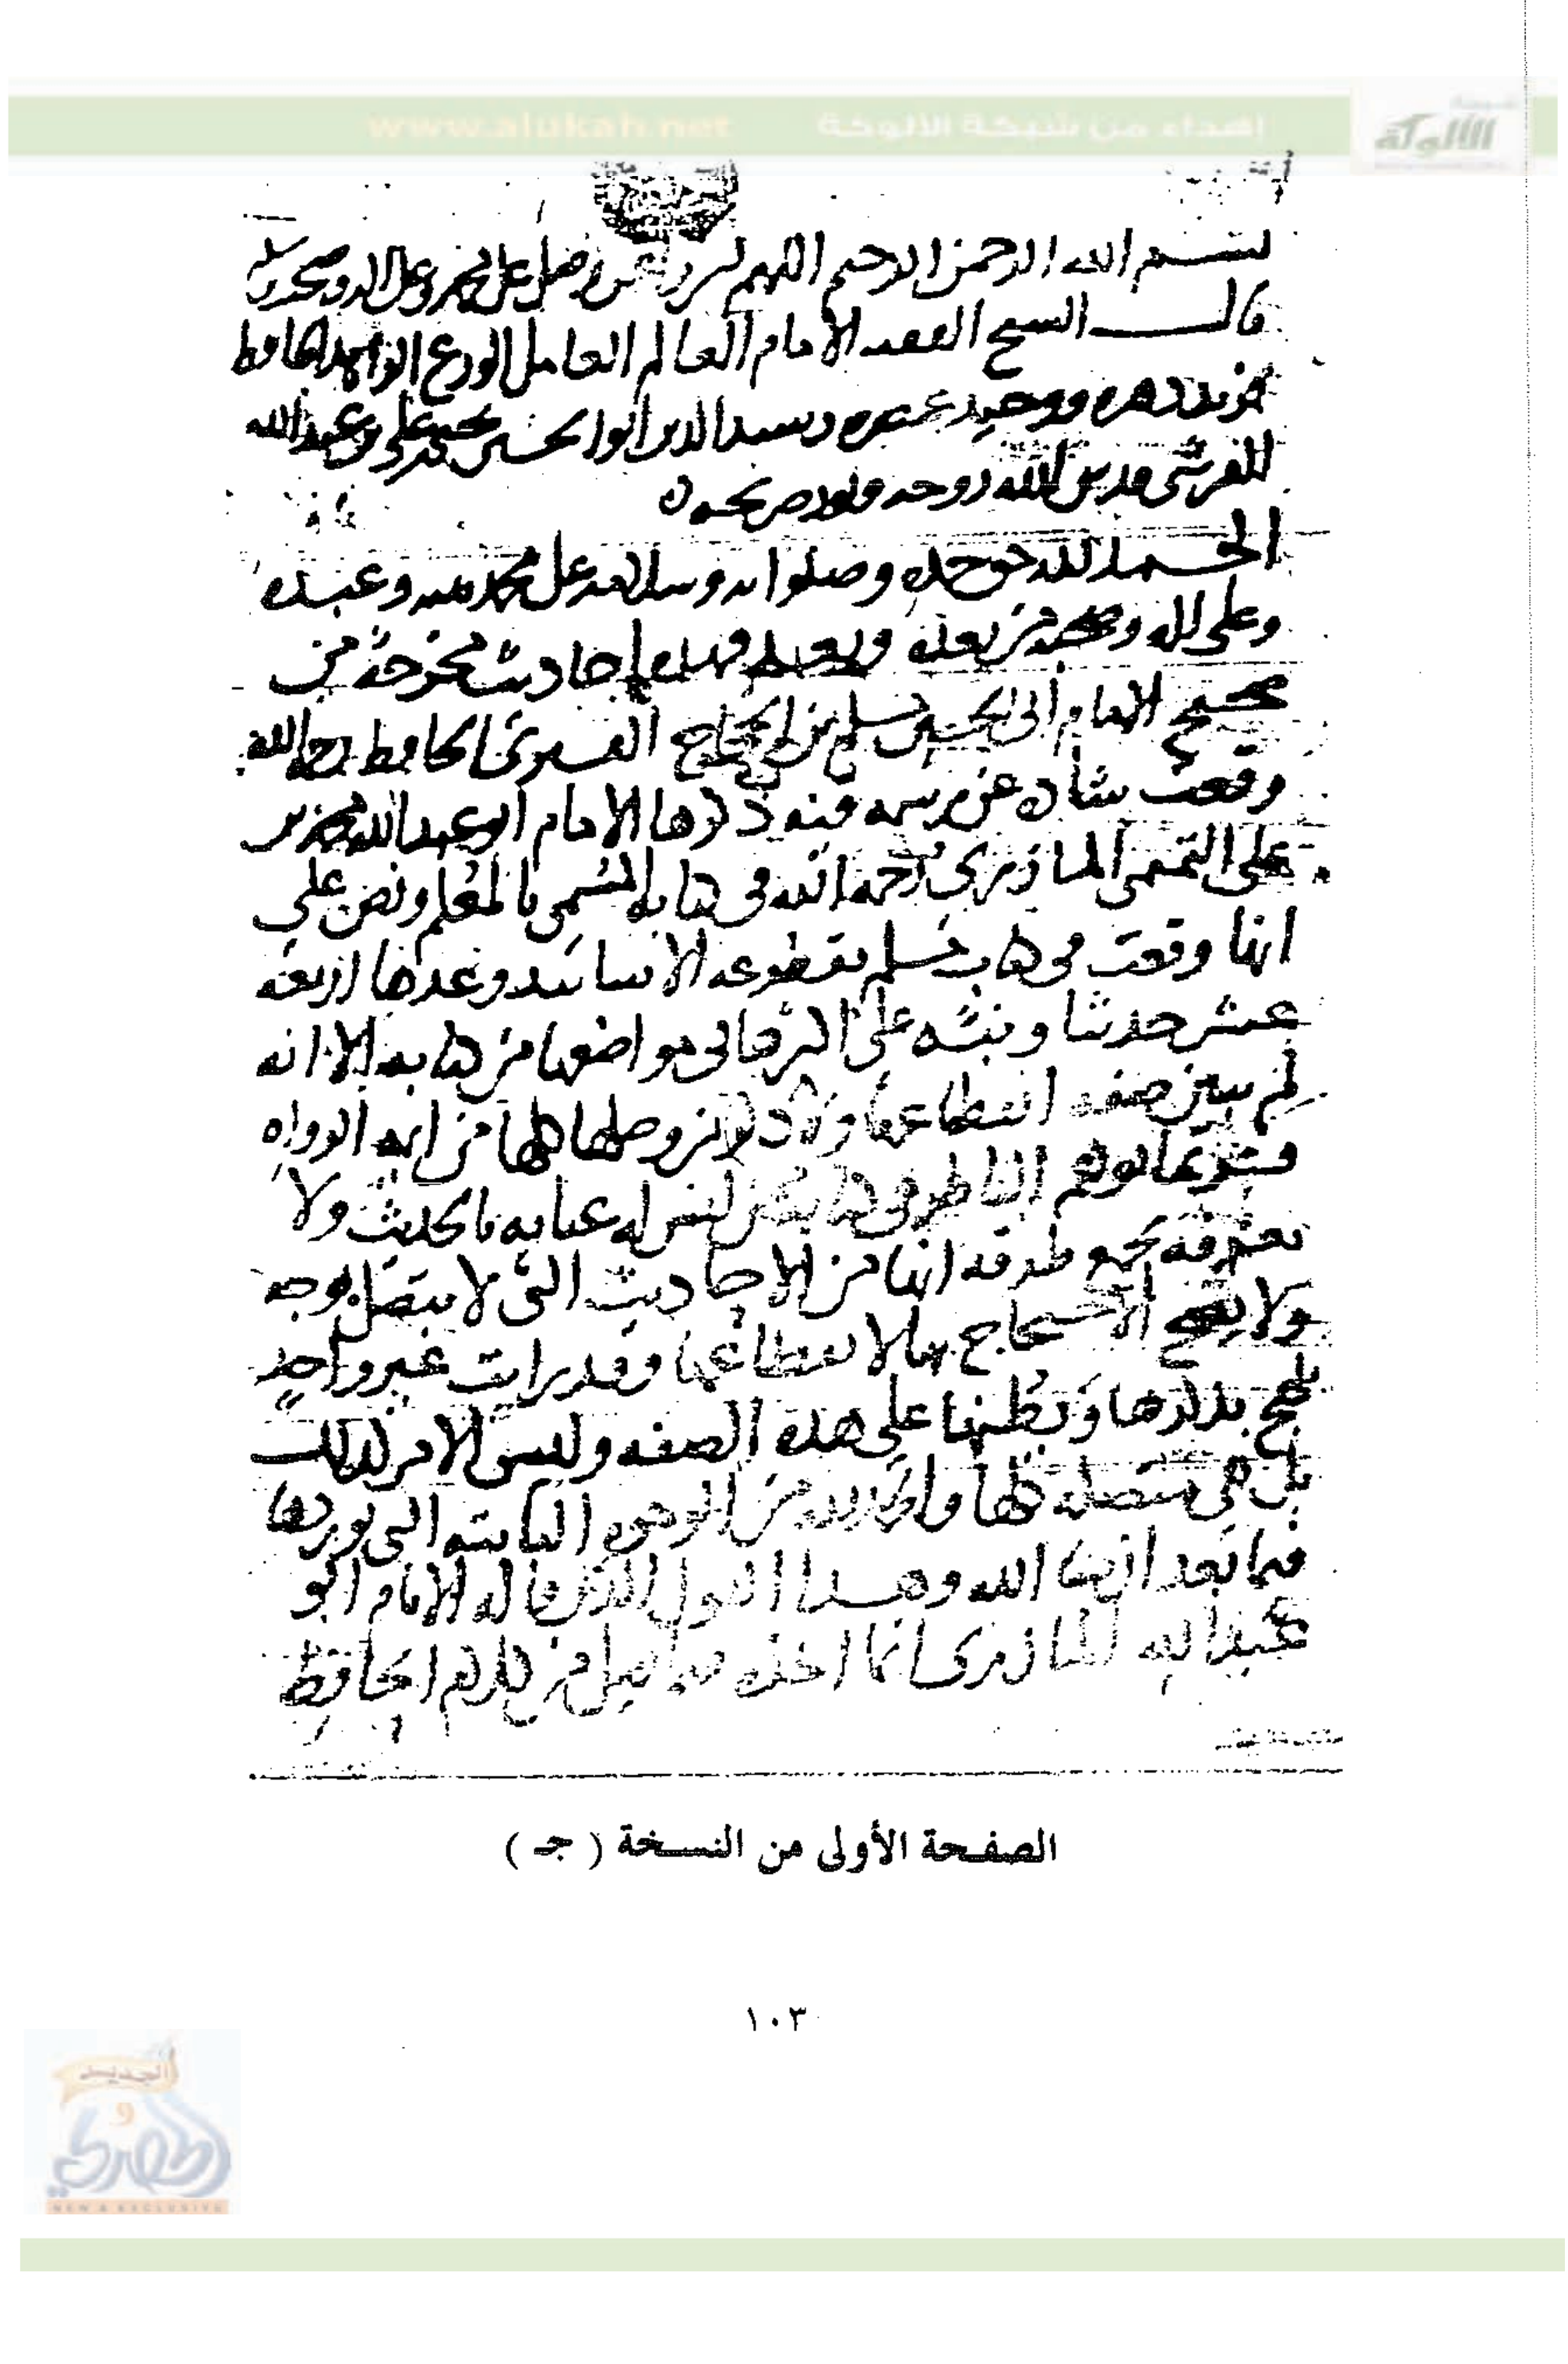 www.alukah.net إهداء من شبكة الألوكة
شبكة الألوكة
بسم الله الرحمن الرحيم اللهم يسر وأعن وصل على محمد وعلى اله وصحبه وسلم
قال الشيخ الفقيه الامام العالم العامل الورع الزاهد الحافظ
فريد دهره ووحيد عصره رشيد الدين ابو الحسين يحيى بن علي بن عبد الله
القرشي قدس الله روحه ونور ضريحه
الحمد لله حق حمده وصلواته وسلامه على محمد نبيه وعبده
وعلى اله وصحبه من بعده وبعد فهذه احاديث مخرجة من
صحيح الامام ابي الحسين مسلم بن الحجاج القشيري الحافظ رحمه الله
وقعت شاذة عن رسمه فيه ذكرها الامام ابو عبد الله محمد بن
علي التميمي المازري رحمه الله في كتابه المسمى بالمعلم ونص على
انها وقعت في كتاب مسلم مقطوعة الاسانيد وعدها اربعة
عشر حديثا ونبه على اكثرها في مواضعها من كتابه الا انه
لم يبين صفة انقطاعها ولا ذكر من وصلها كلها من ايمة الرواة
فربما توهم الناظر في كتابه ممن ليس له عناية بالحديث ولا
معرفة بجمع طرقه انها من الاحاديث التي لا يتصل بوجه
ولا يصح الاحتجاج بها لانقطاعها وقد رايت غير واحد
يلهج بذكرها ويظنها على هذه الصفة وليس الامر كذلك
بل هي متصلة كلها والحمد لله من الوجوه الثابتة التي نوردها
فيما بعد ان شا الله وهذا القول الذي قاله الامام ابو
عبد الله المازري انما اخذه فيما قيل من كلام الحافظ
الصفحة الأولى من النسخة ( جـ )
١٠٣
الجديد
و
الحصري
NEW & EXCLUSIVE